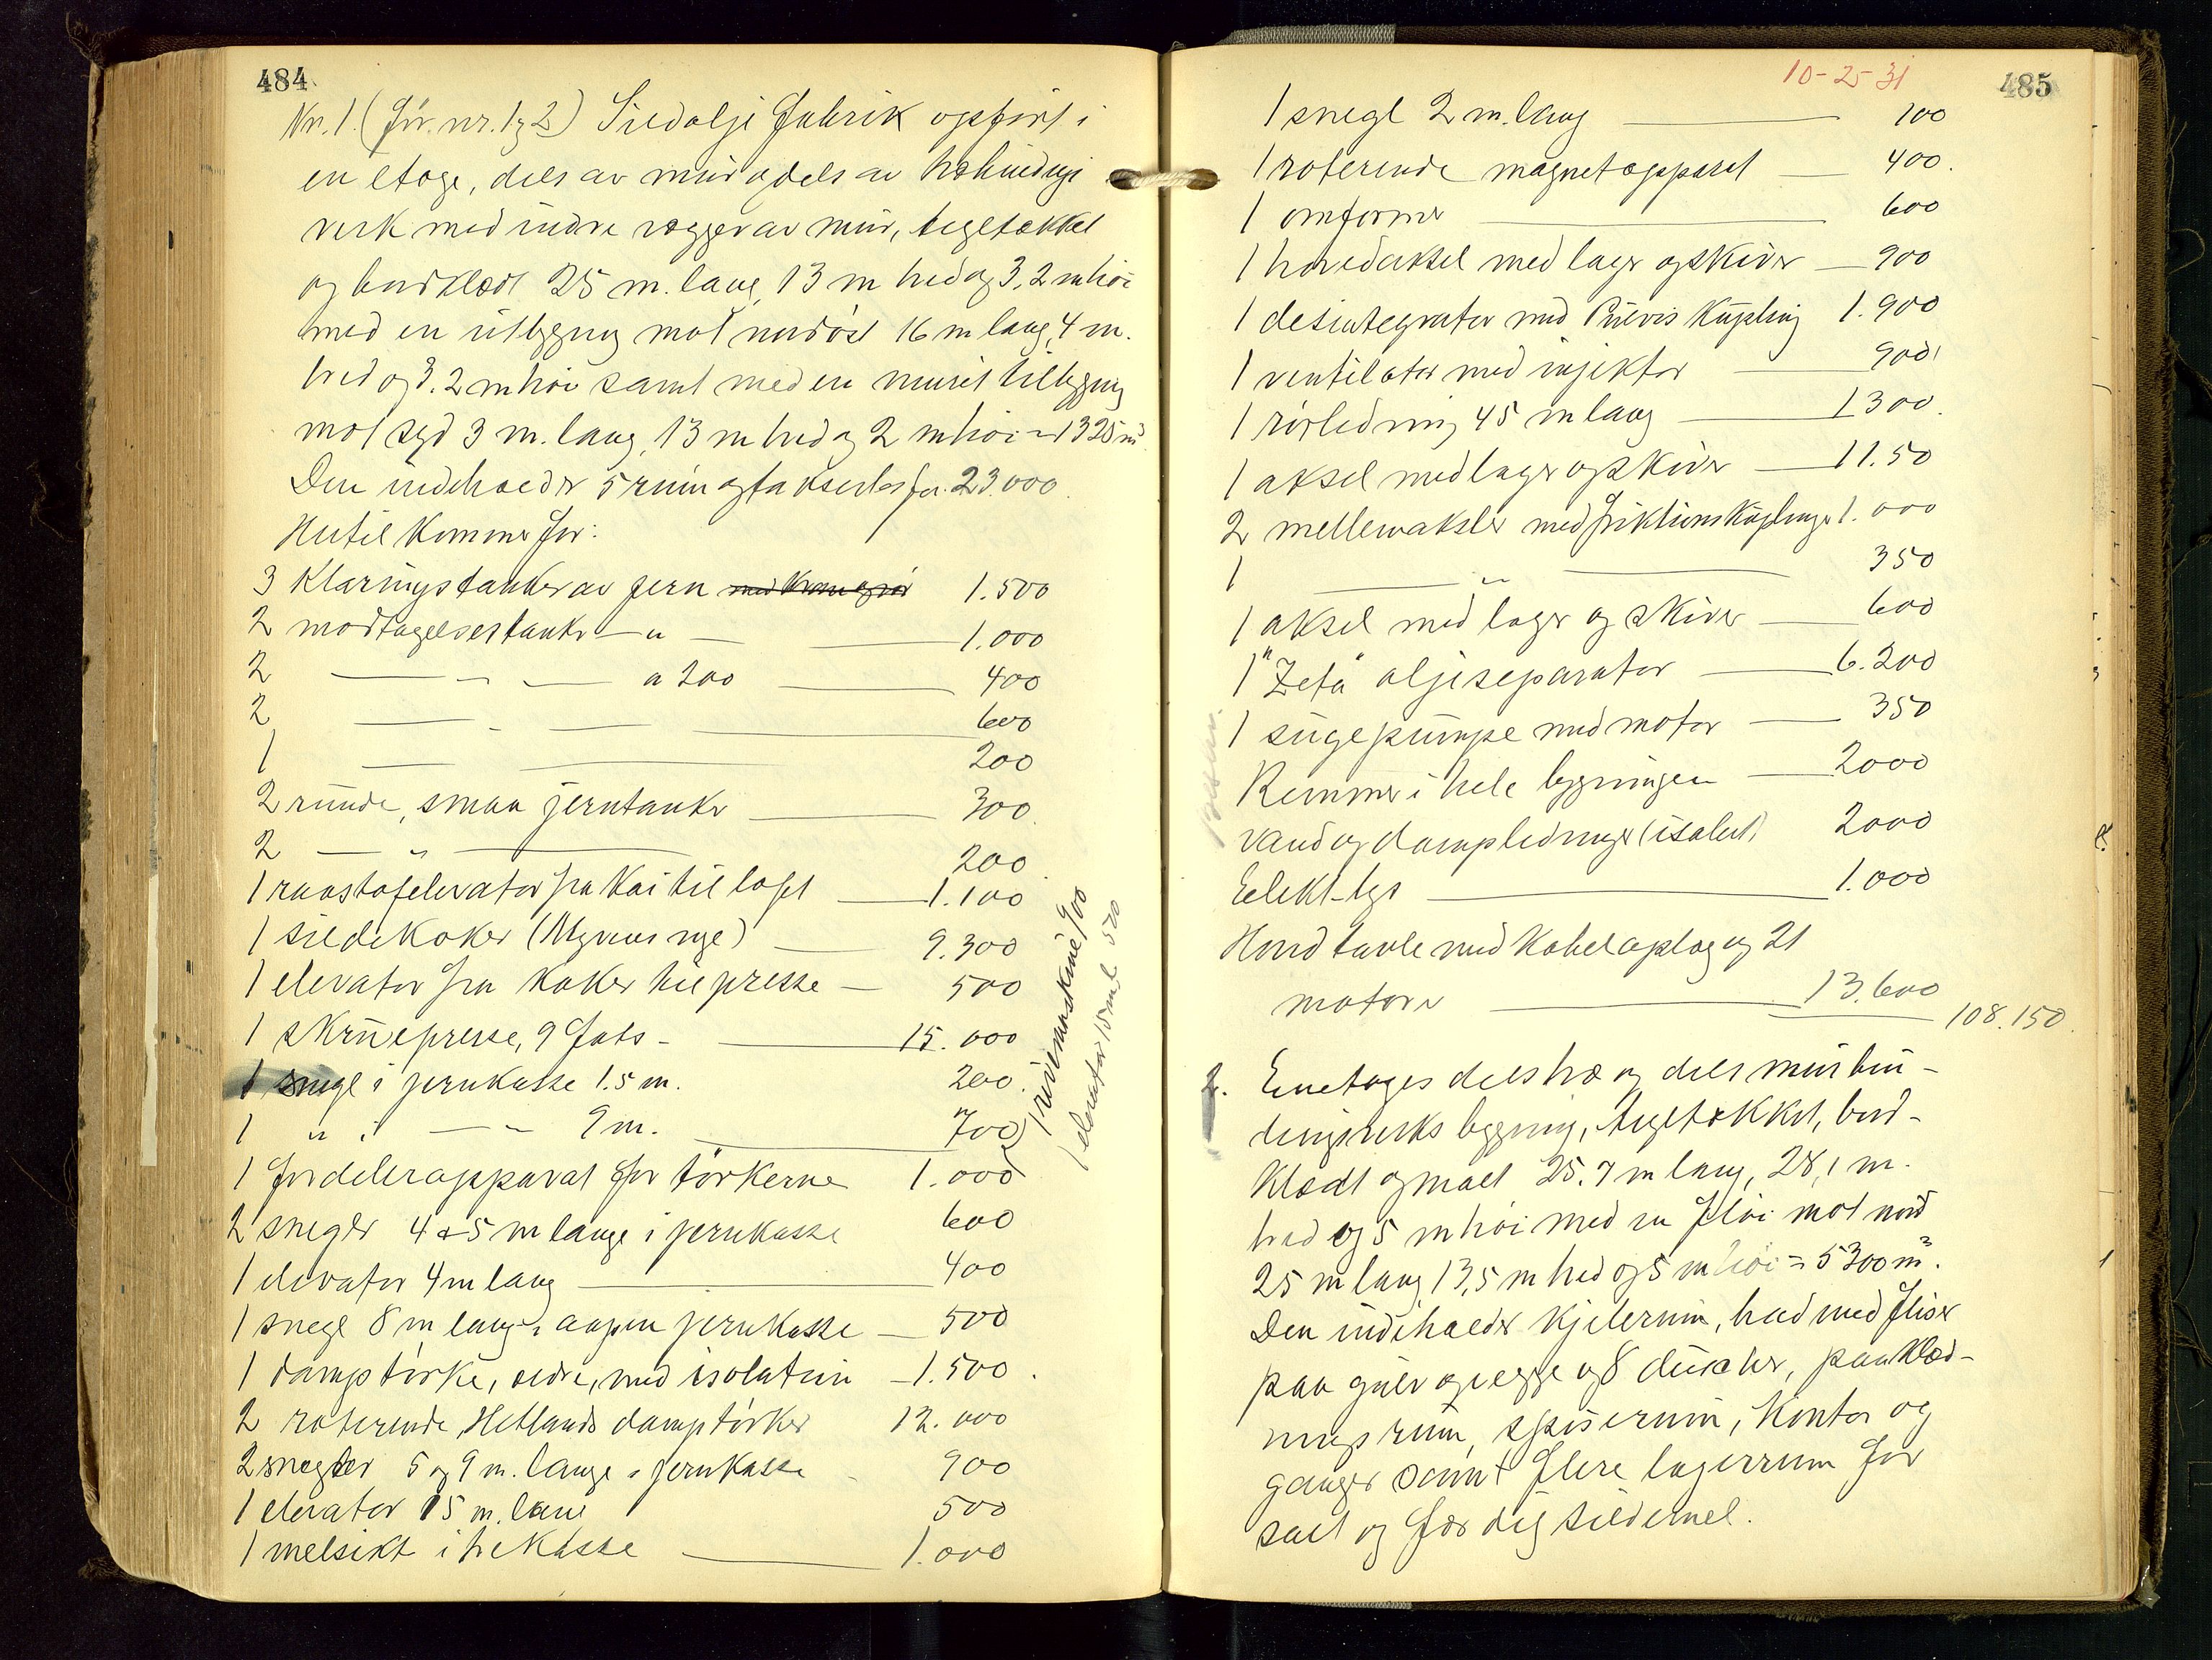 484
Nr. 1. (før nr. 1 & 2) Sildolje fabrik opført i
en etage, dels av mur og dels av træbindings
verk med indre vægger av mur, tegltækket
og bordklædt 25 m. lang, 13 m bred og 3,2 m høi
med en utbygning mot nordøst 16 m lang, 4 m.
bred og 3.2 m høi samt med en muret tilbygning
mot syd 3 m. lang, 13 m bred og 2 m høi = 1325 m³
Den indeholder 5 rum og takseres for 23.000.
Hertil kommer for:
3 Klaringstanker av jern 1.500
2 modtagelsestanker — " — 1.000
2 — " — a 200 — 400
2 — " — 600
1 — — 200
2 runde, smaa jerntanker — 300.
2 — " — 200.
1 raastofelevator fra kai til loft — 1.100
1 sildekoker (Myrens nye) — 9.300
1 elevator fra koker til presse — 500
1 skruepresse, 9 fots — 15.000
1 snegl i jernkasse 1.5 m. 200.
1 " i — " 9 m. — 700
1 rivemaskine 900
1 elevator 10 m l. 500
1 fordelerapparat for tørkerne 1.000
2 snegler 4 & 5 m lange i jernkasse 600
1 elevator 4 m lang — 400
1 snegl 8 m lang i aapen jernkasse — 500
1 damptørke, ældre, med isolation — 1.500.
2 roterende Hetlands damptørker 12.000
2 snegler 5 og 9 m. lange i jernkasse 900
1 elevator 15 m. lang 500
1 melsikt i trekasse — 1.000
10-25-31
485
1 snegl 2 m. lang — 100
1 roterende magnetapparat — 400.
1 omformer — 600
1 hovedaksel med lager og skiver — 900
1 desintegrator med Purvis Kupling 1.900
1 ventilator med injektor — 900
1 rørledning 45 m lang — 1300.
1 aksel med lager og skiver — 11.50
2 mellemaksler med friktionskuplinger 1.000
1 — " — 350
1 aksel med lager og skiver — 600
1 "Zeta" oljeseparator — 6.200
1 sugepumpe med motor — 350
Remmer i hele bygningen — 2000
Vand og dampledninger (isolert) 2000
Elekt. lys — 1.000
Hovedtavle med kabeloplag og 21
motorer — 13.600
108.150.
2. Enetages dels træ og dels murbin-
dingsverks bygning, tegltækket, bord-
klædt og malt 25.7 m lang, 28,1 m.
bred og 5 m høi med en fløi mot nord
25 m lang 13,5 m bred og 5 m høi = 5300 m³.
Den indeholder kjelerum, bad med fliser
paa gulv og vegge og 8 duscher, paaklæd-
ningsrum, spiserum, kontor og
ganger samt flere lagerrum for
salt og færdig sildemel.